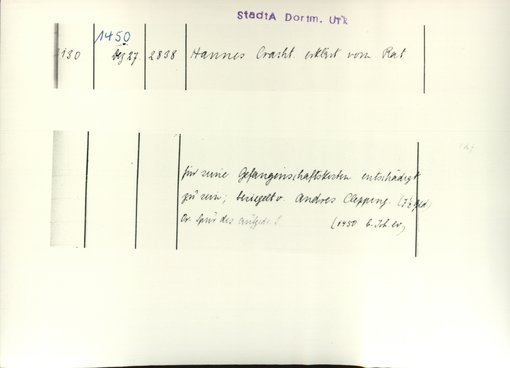 StadtA Dortm. Urk
1450
130 Dez 27 2838 Hannes Crasht erklärt vom Rat
für seine Gefangenschaftskosten entschädigt
zu sein; besiegelt v. Andres Clepping
Or. Spur des aufgedr. S. (1450 6. Joh. ev.)